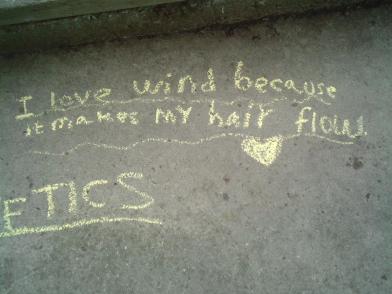 I love wind because
it makes my hair flow.
ETICS